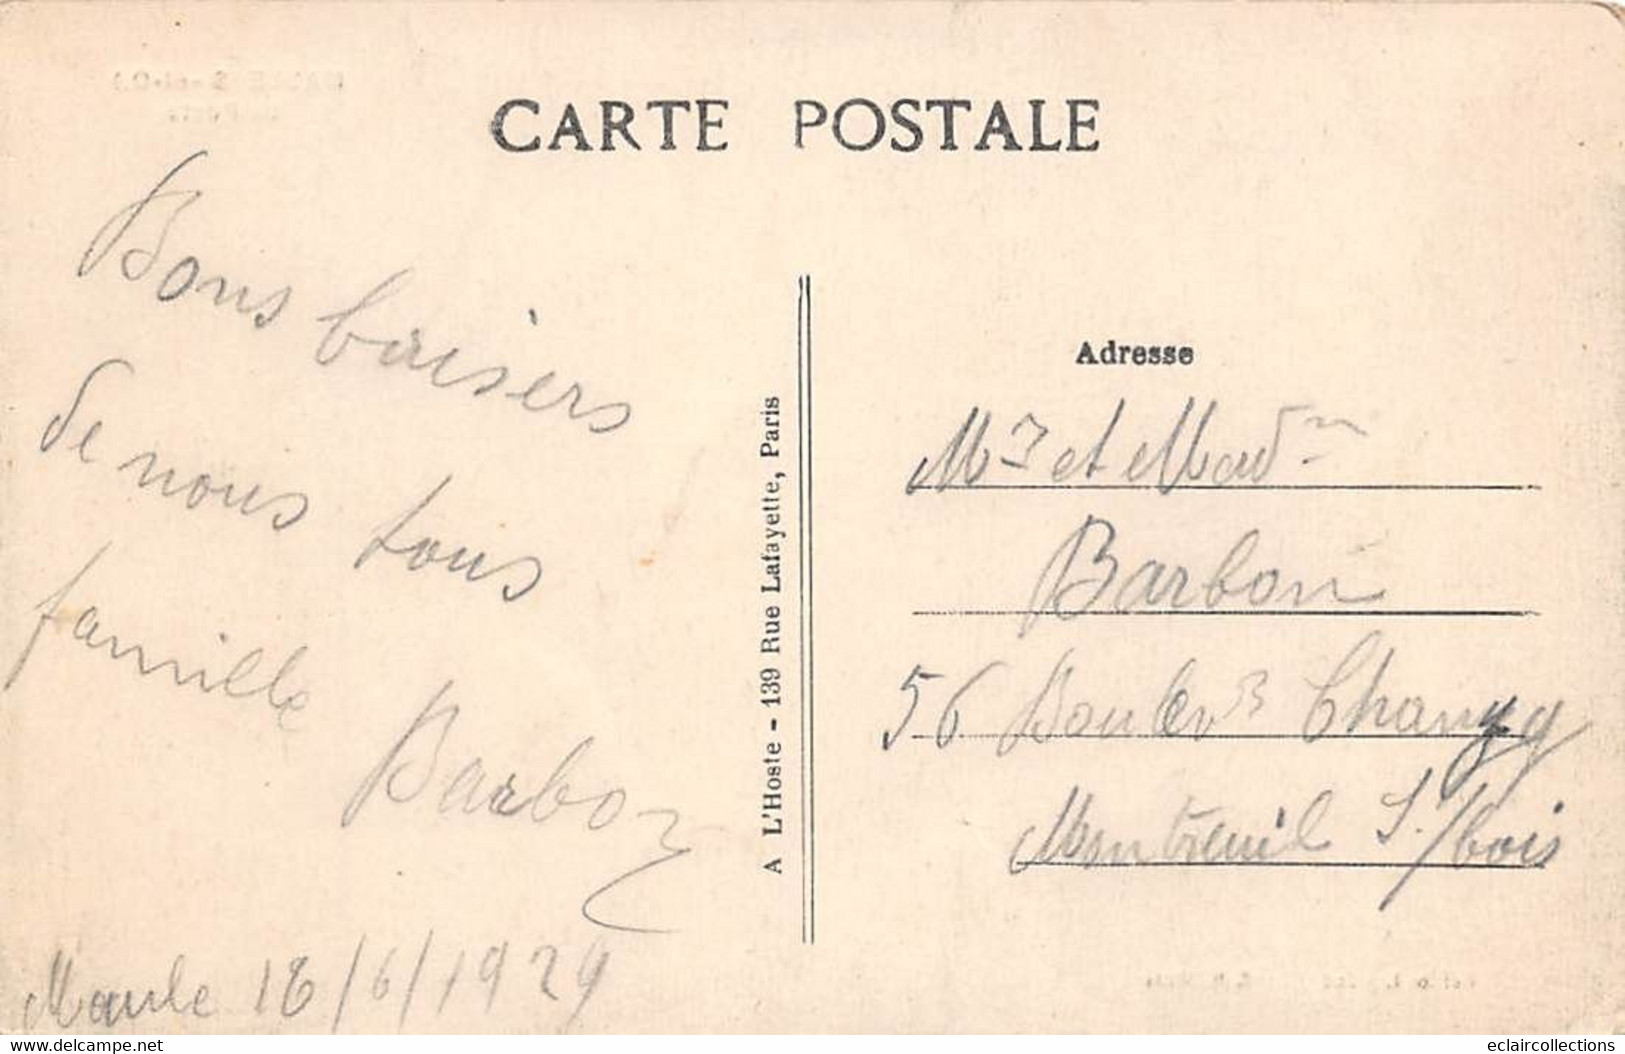 CARTE POSTALE
Bons baisers
de nous tous
famille
Barbon
Maule 18/6/1929
A L'Hoste - 139 Rue Lafayette, Paris
Adresse
Mr et Madm
Barbon
56 Boulevd Chanzy
Montreuil S./bois
delcampe.net
eclaircollections